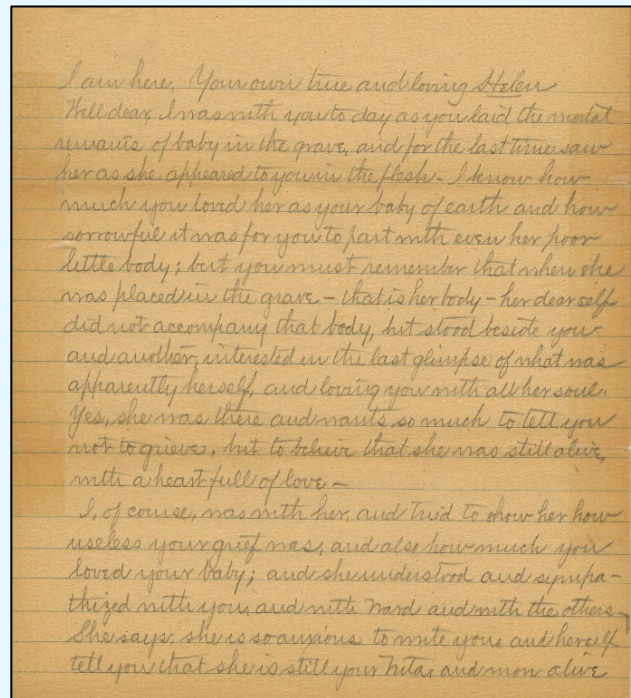 I am here, Your own true and loving Helen
Well dear, I was with you to day as you laid the mortal
remains of baby in the grave, and for the last time saw
her as she appeared to you in the flesh - I know how
much you loved her as your baby of earth and how
sorrowful it was for you to part with even her poor
little body; but you must remember that when she
was placed in the grave - that is her body - her dear self
did not accompany that body, but stood beside you
and another, interested in the last glimpse of what was
apparently herself, and loving you with all her soul.
Yes, she was there and wants so much to tell you
not to grieve, but to believe that she was still alive,
with a heart full of love -
I, of course, was with her, and tried to show her how
useless your grief was, and also how much you
loved your baby; and she understood and sympa-
thized with you, and with Ward and with the others -
She says, she is so anxious to write you, and herself
tell you that she is still your Nita, and alive